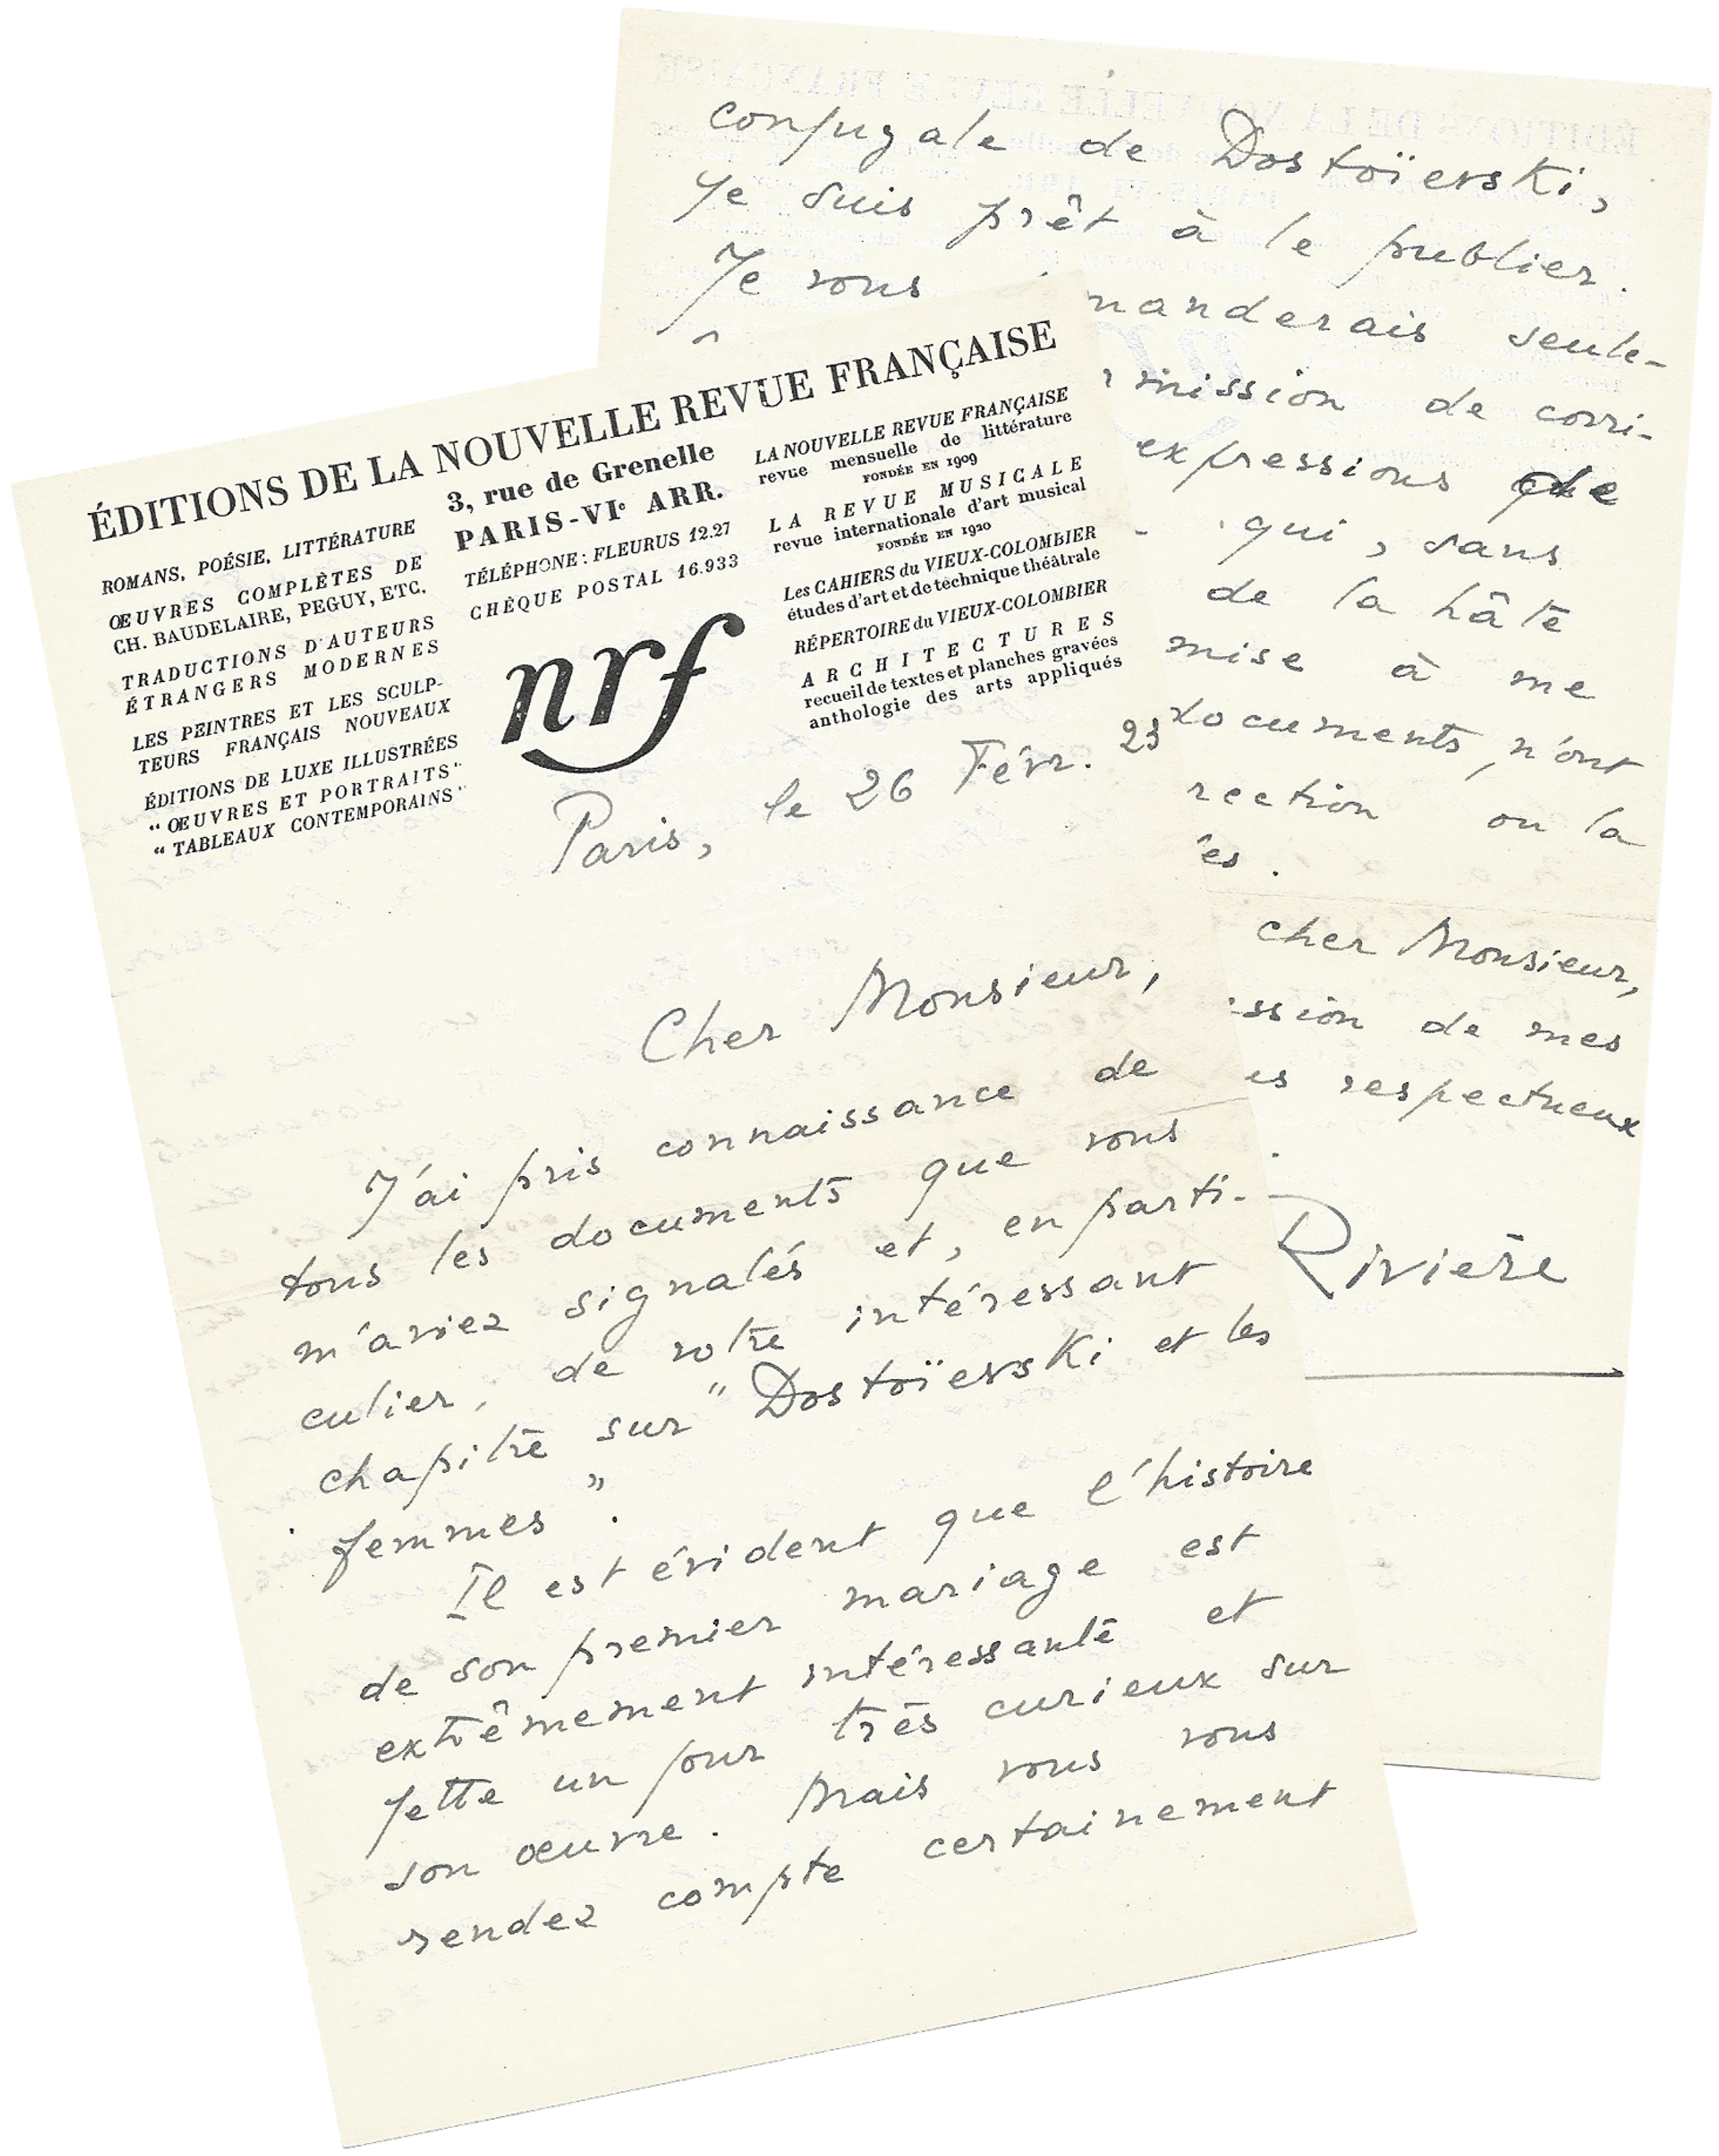 ÉDITIONS DE LA NOUVELLE REVUE FRANÇAISE
ROMANS, POÉSIE, LITTÉRATURE
ŒUVRES COMPLÈTES DE
CH. BAUDELAIRE, PEGUY, ETC.
TRADUCTIONS D'AUTEURS
ÉTRANGERS MODERNES
LES PEINTRES ET LES SCULP-
TEURS FRANÇAIS NOUVEAUX
ÉDITIONS DE LUXE ILLUSTRÉES
"ŒUVRES ET PORTRAITS"
"TABLEAUX CONTEMPORAINS"
3, rue de Grenelle
PARIS-VIe ARR.
TÉLÉPHONE: FLEURUS 12.27
CHÈQUE POSTAL 16.933
nrf
LA NOUVELLE REVUE FRANÇAISE
revue mensuelle de littérature
FONDÉE EN 1909
LA REVUE MUSICALE
revue internationale d'art musical
FONDÉE EN 1920
Les CAHIERS du VIEUX-COLOMBIER
études d'art et de technique théâtrale
RÉPERTOIRE du VIEUX-COLOMBIER
ARCHITECTURES
recueil de textes et planches gravées
anthologie des arts appliqués
Paris, le 26 Févr. 23
Cher Monsieur,
J'ai pris connaissance de
tous les documents que vous
m'aviez signalés et, en parti-
culier, de votre intéressant
chapitre sur "Dostoïevski et les
femmes".
Il est évident que l'histoire
de son premier mariage est
extrêmement intéressante et
jette un jour très curieux sur
son œuvre. Mais vous vous
rendez compte certainement
conjugale de Dostoïevski,
je suis prêt à le publier.
Je vous manderais seule-
mission de corri-
expressions de
qui, sans
de la hâte
mise à me
documents, n'ont
rection ou la
es.
cher Monsieur,
ssion de mes
es respectueux
Rivière